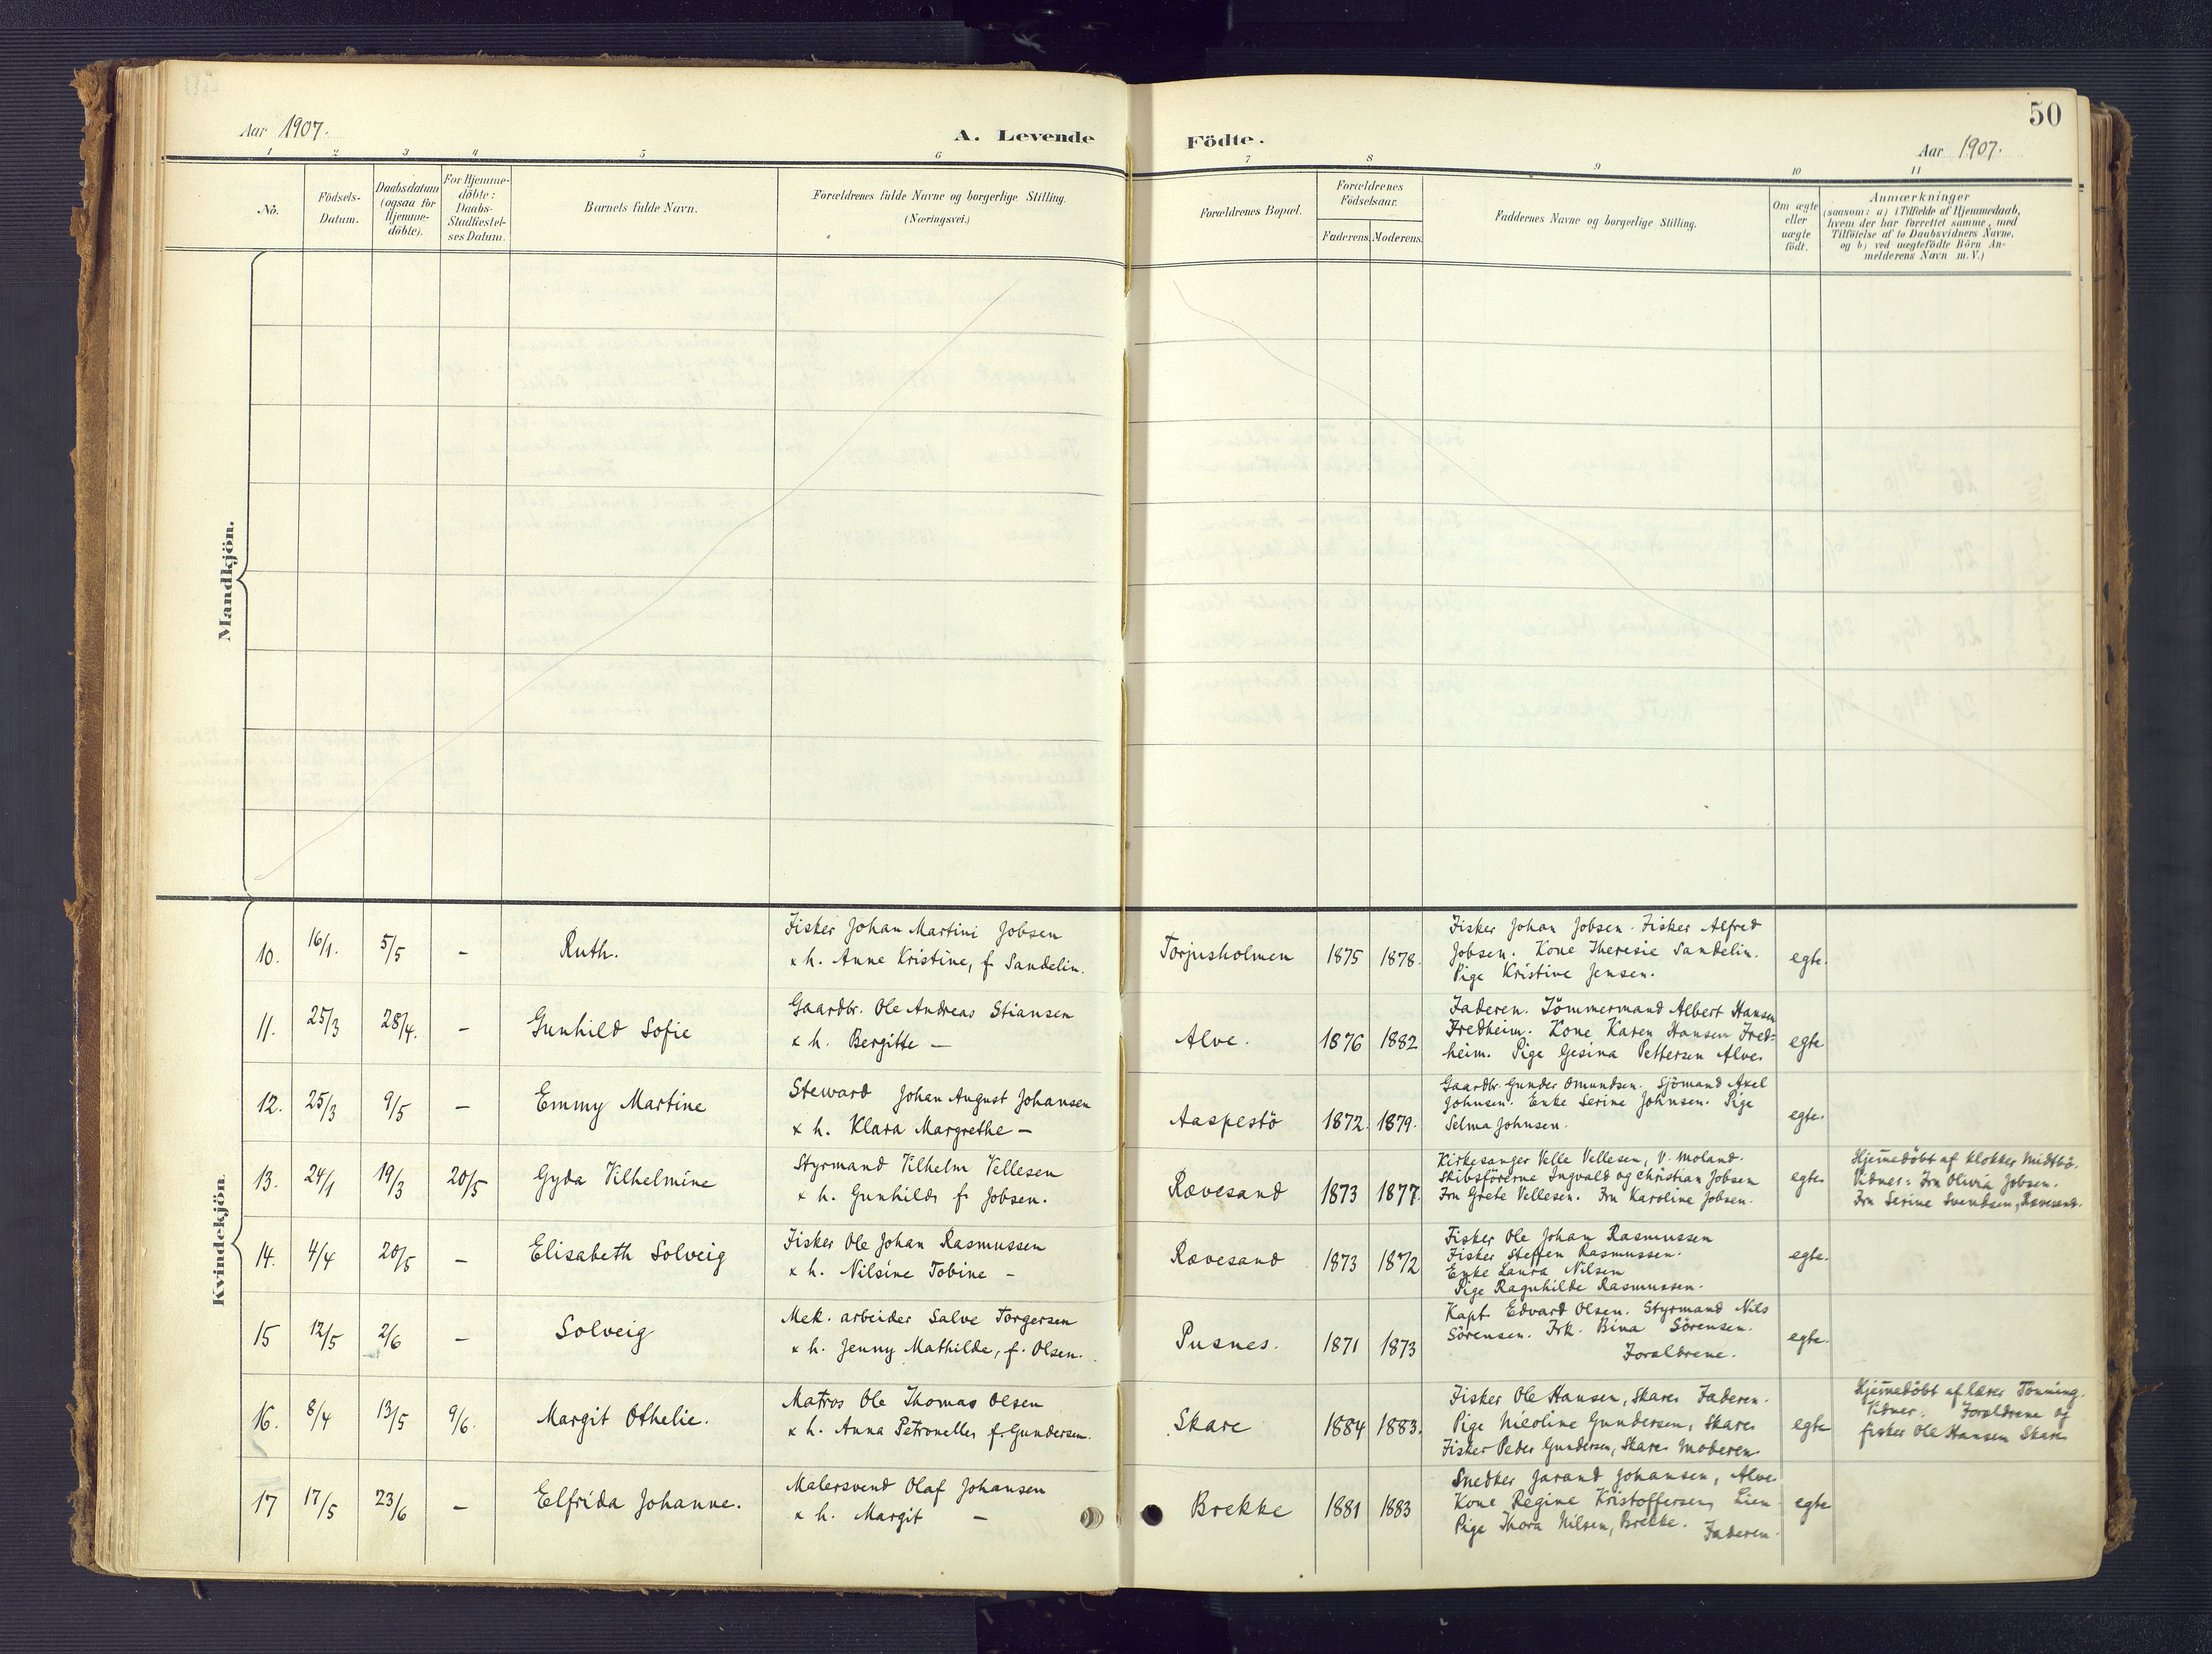 50
Aar 1907.
A. Levende Födte.
Aar 1907.
1 2 3 4 5 6 7 8 9 10 11
No.
Födsels-
Datum.
Daabsdatum
(ogsaa for
Hjemme-
döbte).
For Hjemme-
döbte:
Daabs-
Stadfestel-
ses Datum.
Barnets fulde Navn.
Forældrenes fulde Navne og borgerlige Stilling.
(Næringsvei.)
Forældrenes Bopæl.
Forældrenes
Födselsaar.
Faderens. Moderens.
Faddernes Navne og borgerlige Stilling.
Om ægte
eller
uægte
födt.
Anmærkninger
(saasom: a) i Tilfælde af Hjemmedaab,
hvem der har forrettet samme, med
Tilföielse af to Daabsvidners Navne,
og b) ved uægtefödte Börn An-
melderens Navn m. V.)
Mandkjön.
Kvindekjön.
10. 16/1. 5/5 – Ruth.
Fisker Johan Martini Jobsen
x h. Anne Kristine, f. Sandelin.
Torjusholmen 1875 1878.
Fisker Johan Jobsen. Fisker Alfred
Jobsen. Kone Theresie Sandelin.
Pige Kristine Jensen.
egte.
11. 25/3 28/4. – Gunhild Sofie
Gaardbr. Ole Andreas Stiansen
x h. Bergitte –
Alve. 1876 1882
Faderen. Tömmermand Albert Hansen
Fredheim. Kone Karen Hansen Fred-
heim. Pige Gesina Pettersen Alve.
egte
12. 25/3 9/5 – Emmy Martine
Steward Johan August Johansen
x h. Klara Margrethe –
Aaspestö 1872. 1879.
Gaardbr. Gunder Omundsen. Sjömand Axel
Johnsen. Enke Serine Johnsen. Pige
Selma Johnsen.
egte.
13. 24/1 19/3 20/5 Gyda Vilhelmine
Styrmand Vilhelm Vellesen
x h. Gunhild, f. Jobsen.
Rævesand 1873 1877.
Kirkesanger Velle Vellesen, V. Moland.
Skibsförerne Ingvald og Christian Jobsen
Fru Grete Vellesen. Fru Karoline Jobsen.
egte.
Hjemmedöbt af klokker Midtbö.
Vidner: Fru Olivia Jobsen.
Fru Serine Svendsen, Rævesand.
14. 4/4 20/5 – Elisabeth Solveig
Fisker Ole Johan Rasmussen
x h. Nilsine Tobine –
Rævesand 1873 1872
Fisker Ole Johan Rasmussen
Fisker Steffen Rasmussen.
Enke Laura Nilsen
Pige Ragnhilde Rasmussen.
egte.
15 12/5 2/6 – Solveig
Mek. arbeider Salve Torgersen
x h. Jenny Mathilde, f. Olsen.
Pusnes. 1871 1873
Kapt. Edvard Olsen. Styrmand Nils
Sörensen. Frk. Bina Sörensen.
Forældrene.
egte.
16. 8/4 13/5 9/6. Margit Othelie.
Matros Ole Thomas Olsen
x h. Anna Petronelle, f. Gundersen.
Skare 1884 1883.
Fisker Ole Hansen, Skare. Faderen.
Pige Nicoline Gundersen, Skare.
Fisker Peder Gundersen, Skare. Moderen.
egte
Hjemmedöbt af lærer Tönning.
Vidner: Forældrene og
fisker Ole Hansen Skare
17 17/5 23/6 – Elfrida Johanne.
Malersvend Olaf Johansen
x h. Margit –
Brekke 1881 1883
Snedker Jarand Johansen, Alve.
Kone Regine Kristoffersen, Lien
Pige Thora Nilsen, Brekke. Faderen.
egte